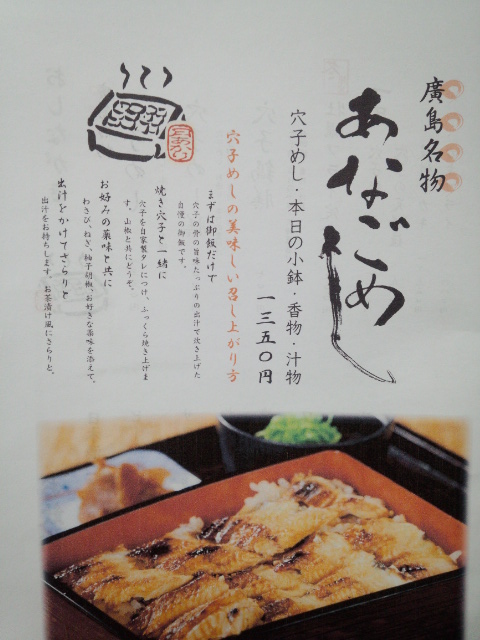 廣島名物
あなごめし
穴子めし・本日の小鉢・香物・汁物
一三五〇円
穴子めしの美味しい召し上がり方
まずは御飯だけで
穴子の骨の旨味たっぷりの出汁で炊き上げた
自慢の御飯です。
焼き穴子と一緒に
穴子を自家製タレにつけ、ふっくら焼き上げま
す。山椒と共にどうぞ。
お好みの薬味と共に
わさび、ねぎ、柚子胡椒、お好きな薬味を添えて。
出汁をかけてさらりと
出汁をお持ちします。お茶漬け風にさらりと。